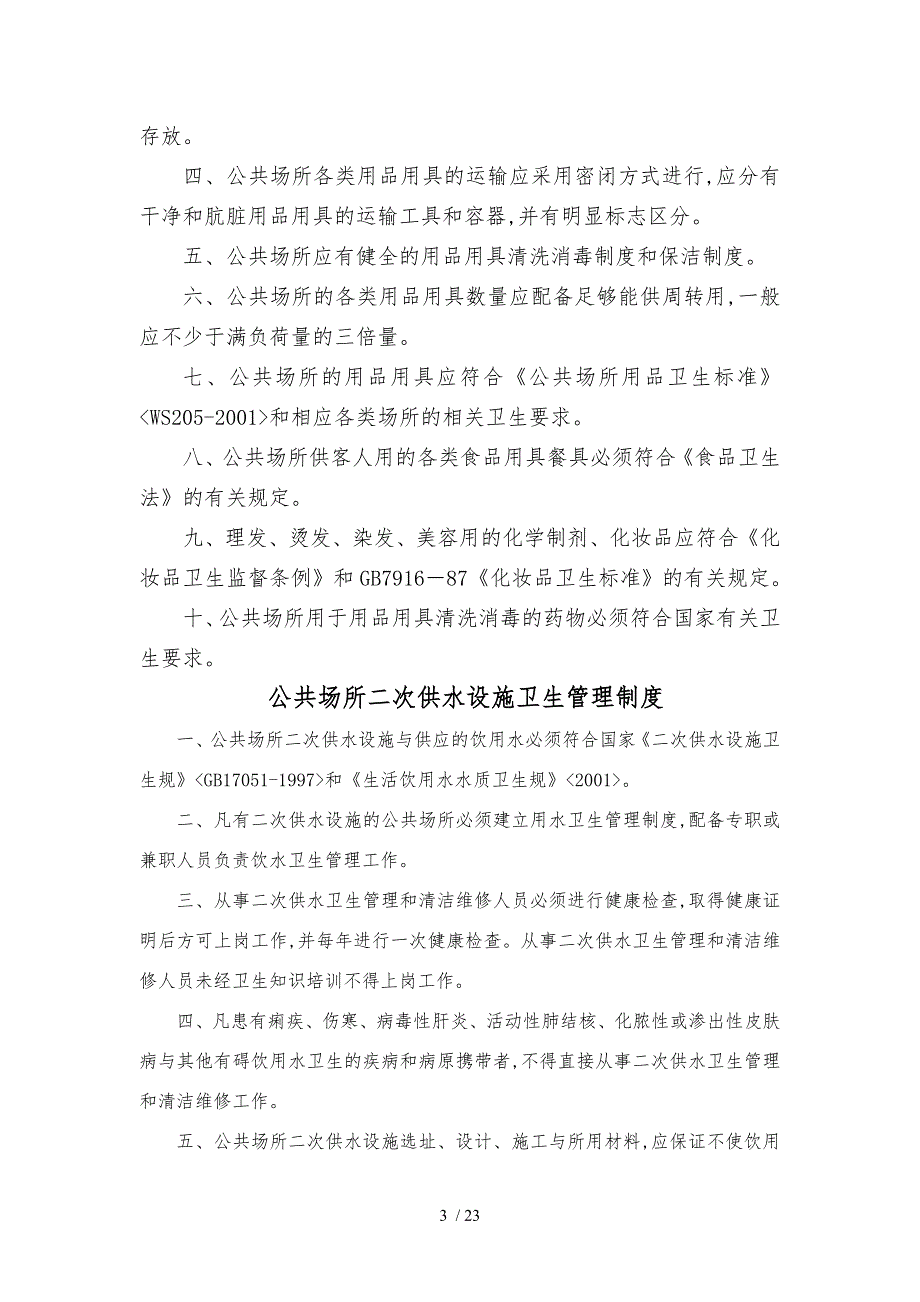 存放。
四、公共场所各类用品用具的运输应采用密闭方式进行,应分有
干净和肮脏用品用具的运输工具和容器,并有明显标志区分。
五、公共场所应有健全的用品用具清洗消毒制度和保洁制度。
六、公共场所的各类用品用具数量应配备足够能供周转用,一般
应不少于满负荷量的三倍量。
七、公共场所的用品用具应符合《公共场所用品卫生标准》
<WS205-2001>和相应各类场所的相关卫生要求。
八、公共场所供客人用的各类食品用具餐具必须符合《食品卫生
法》的有关规定。
九、理发、烫发、染发、美容用的化学制剂、化妆品应符合《化
妆品卫生监督条例》和GB7916－87《化妆品卫生标准》的有关规定。
十、公共场所用于用品用具清洗消毒的药物必须符合国家有关卫
生要求。
公共场所二次供水设施卫生管理制度
一、公共场所二次供水设施与供应的饮用水必须符合国家《二次供水设施卫
生规》<GB17051-1997>和《生活饮用水水质卫生规》<2001>。
二、凡有二次供水设施的公共场所必须建立用水卫生管理制度,配备专职或
兼职人员负责饮水卫生管理工作。
三、从事二次供水卫生管理和清洁维修人员必须进行健康检查,取得健康证
明后方可上岗工作,并每年进行一次健康检查。从事二次供水卫生管理和清洁维
修人员未经卫生知识培训不得上岗工作。
四、凡患有痢疾、伤寒、病毒性肝炎、活动性肺结核、化脓性或渗出性皮肤
病与其他有碍饮用水卫生的疾病和病原携带者,不得直接从事二次供水卫生管理
和清洁维修工作。
五、公共场所二次供水设施选址、设计、施工与所用材料,应保证不使饮用
3 / 23